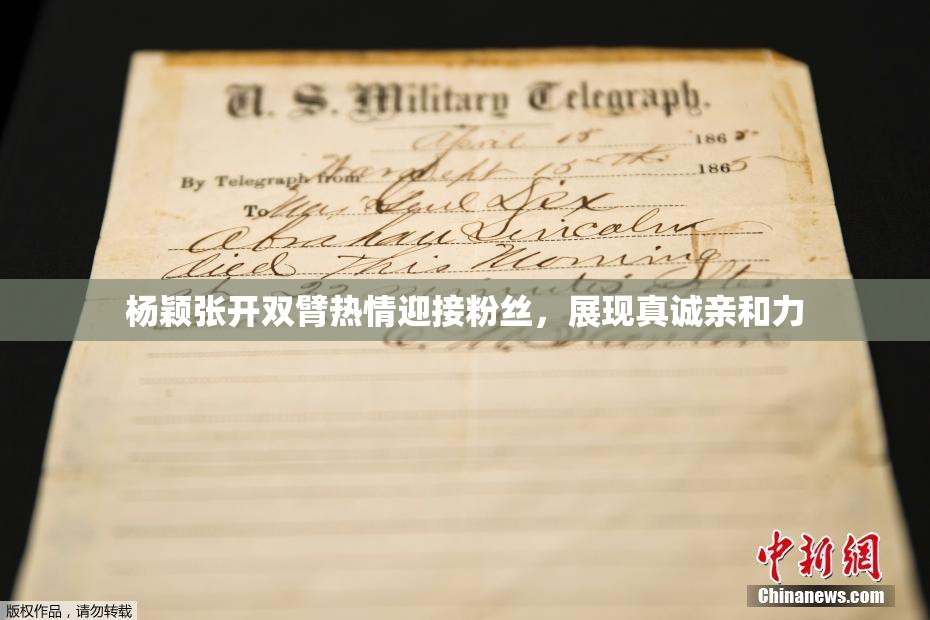 U. S. Military Telegraph.
April 15 1865
By Telegraph from War Dept 15th 1865
To Maj Genl Dix
Abraham Lincoln
died This Morning
at 22 minutes after
杨颖张开双臂热情迎接粉丝，展现真诚亲和力
中新网
Chinanews.com
版权作品，请勿转载